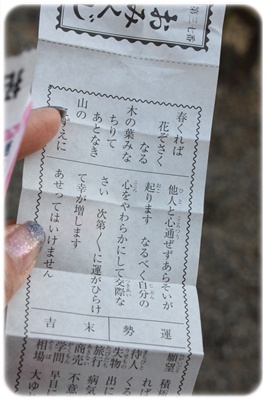 第三七番
おみくじ
春くれば
花ぞさく
なる
木の葉みな
ちりて
あとなき
山の
ずえに
他人と心通ぜずあらそいが
起ります なるべく自分の
心をやわらかにして交際な
さい 次第〱に運がひらけ
て幸が増します
あせってはいけません
運勢
末吉
願望 積極
れば
待人 くる
失物 出に
旅行 病気
商売 不意
学問 早目
相場 大ゆ